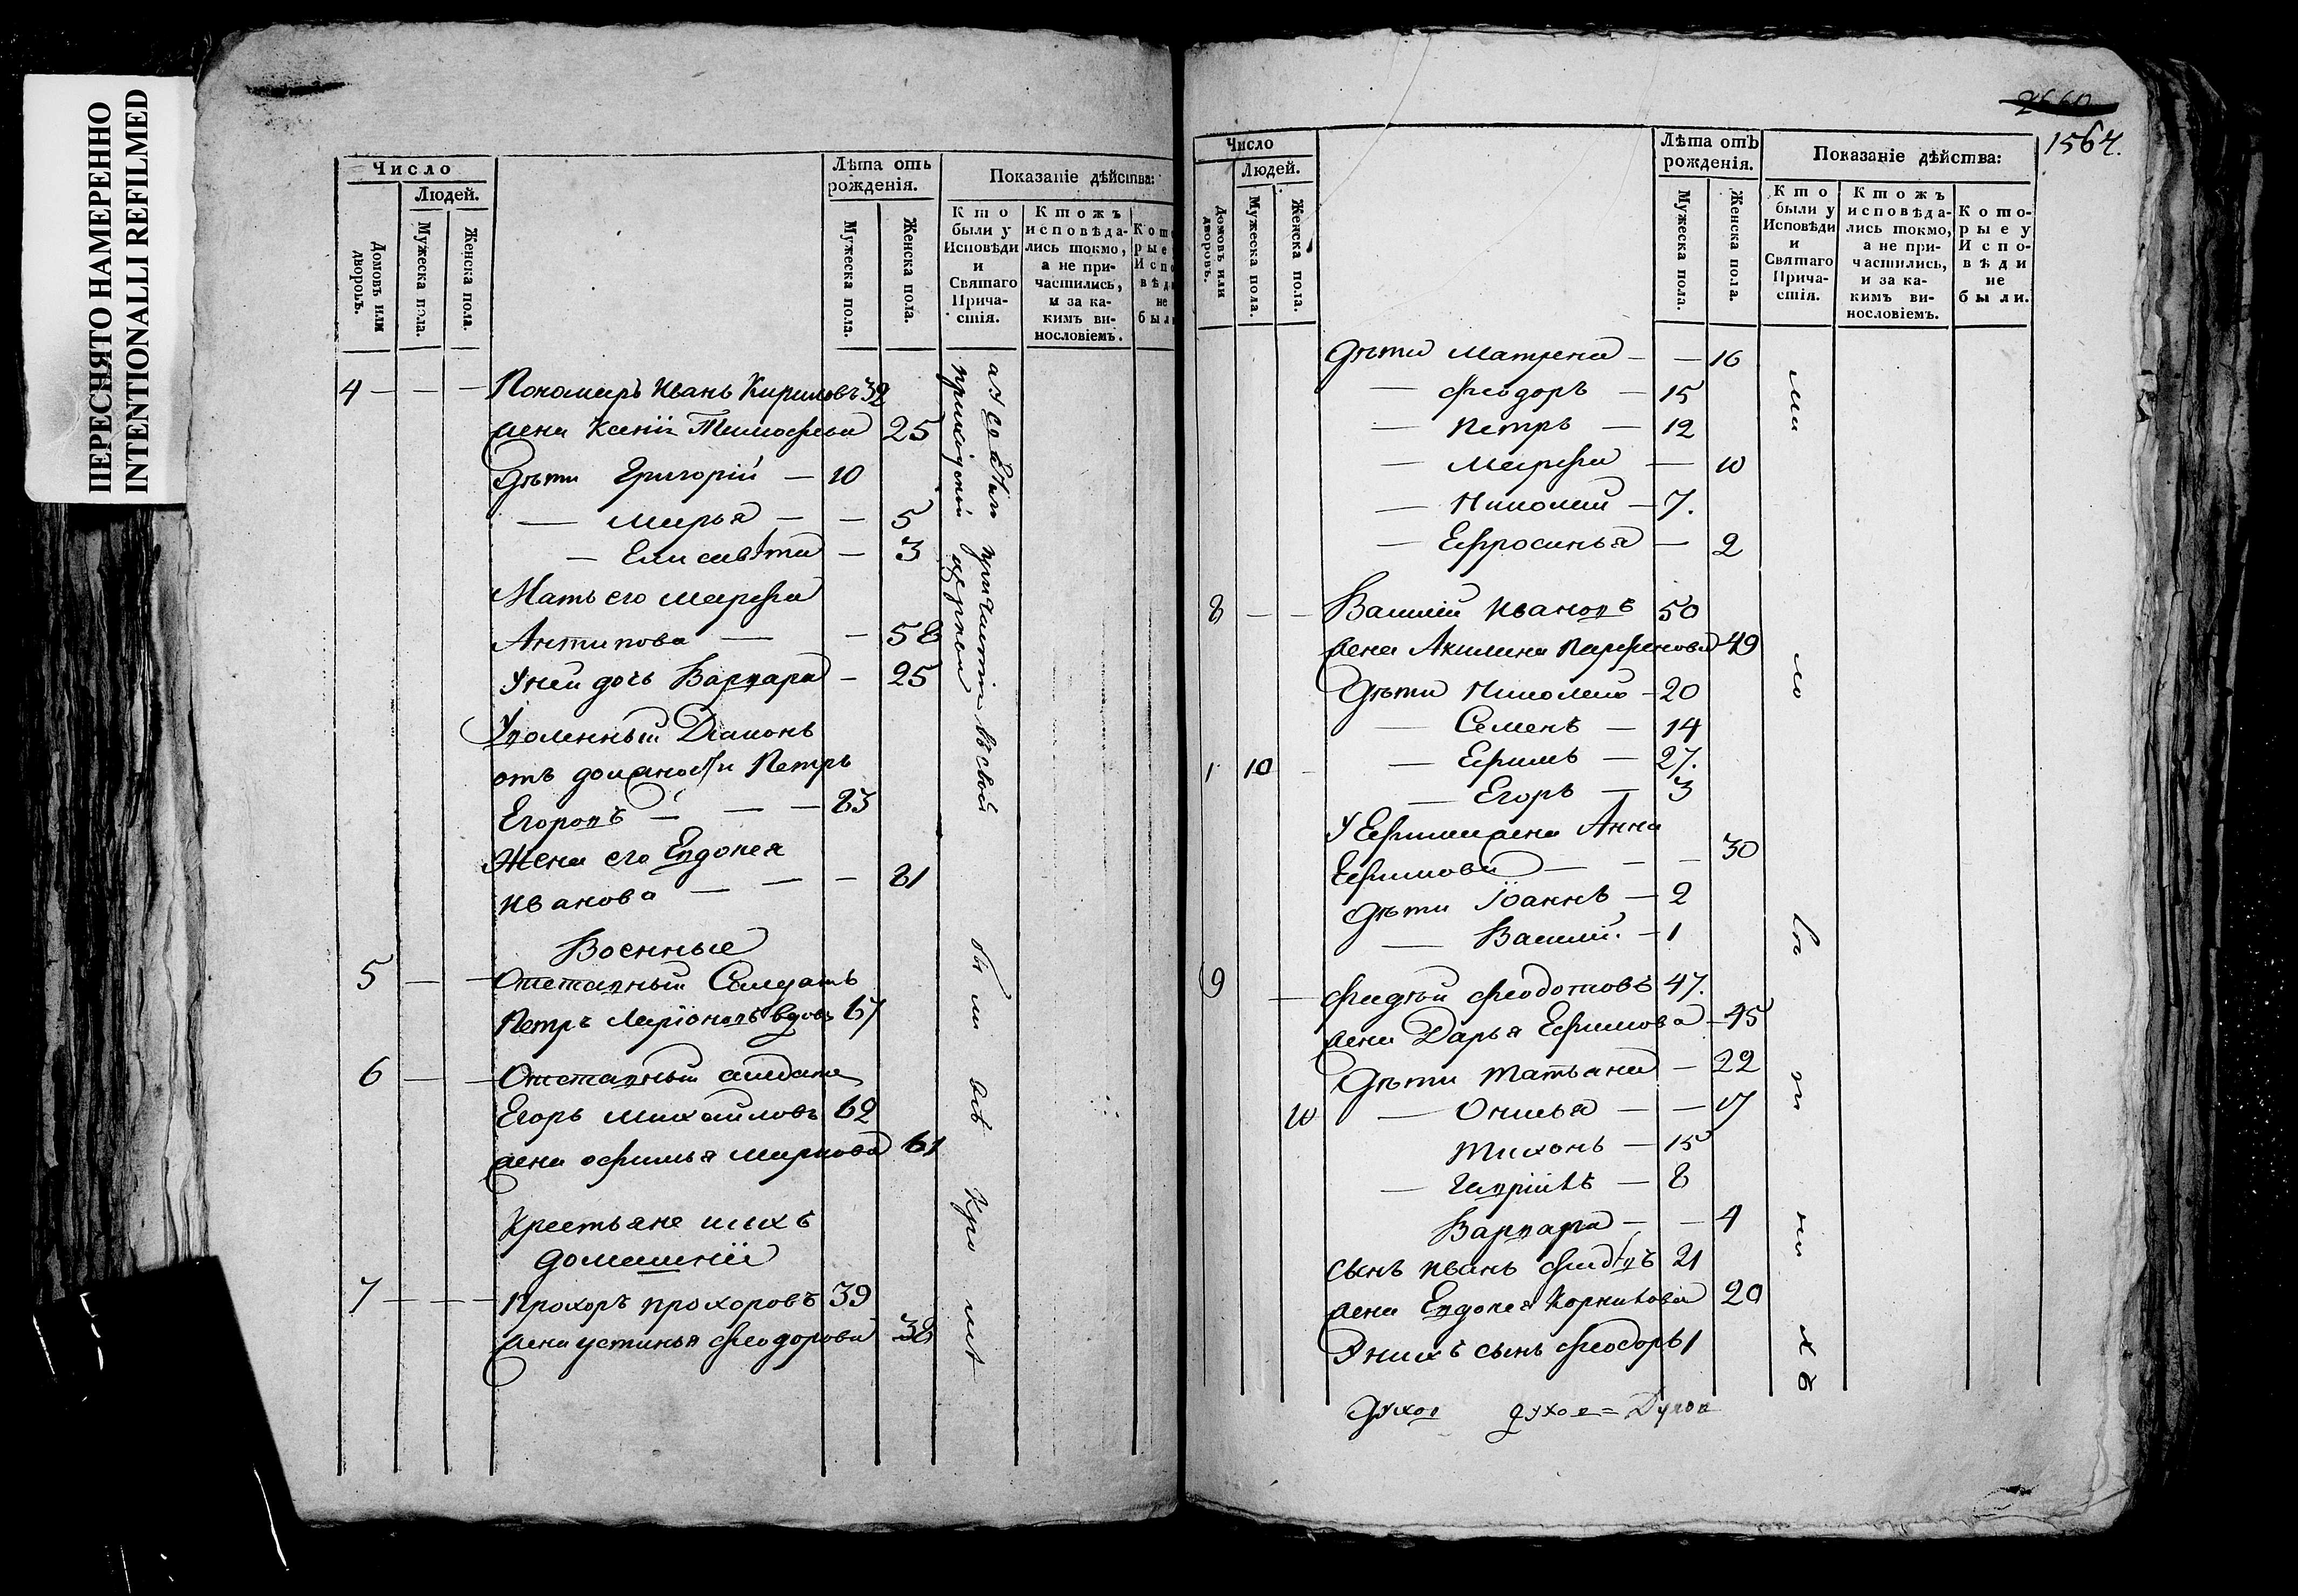 ПЕРЕСНЯТО НАМЕРЕННО
INTENTIONALLI REFILMED
Число
Людей.
Домовъ или дворовъ.
Мужеска пола.
Женска пола.
Лѣта отъ рожденія.
Мужеска пола.
Женска пола.
Показаніе дѣйства:
Кто были у Исповѣди и Святаго Причастія.
Ктожъ исповѣдались токмо, а не причастились, и за какимъ винословіемъ.
4 — — — Пономарь Иванъ Кириловъ 32
жена Ксенія Тимофѣева 25
дѣти Григорій — 10
— Марья — — 5
— Елисавѣта — 3
Мать его Марфа
Антипова — — 58
У ней дочь Варвара — 25
Уволенный Діаконъ
отъ должности Петръ
Егоровъ — — — 83
Жена его Евдокея
Иванова — — — 81
Военные
5 — — Отставный Салдатъ
Петръ Ларіоновъ вдовъ 67
6 — — Отставный салдатъ
Егоръ Михайловъ 62
жена офимья Маркова 61
Крестьяне ихъ
домашніи
7 — — — Прохоръ Прохоровъ 39
жена устинья Феодорова 38
были всѣ кро мѣ
1564.
Число
Людей.
Домовъ или дворовъ.
Мужеска пола.
Женска пола.
Лѣта отъ рожденія.
Мужеска пола.
Женска пола.
Показаніе дѣйства:
Кто были у Исповѣди и Святаго Причастія.
Ктожъ исповѣдались токмо, а не причастились, и за какимъ винословіемъ.
Которые у Исповѣди не были.
дѣти Матрена — — 16
— Феодоръ — 15
— Петръ — 12
— Марфа — 10
— Николай — 7.
— Ефросинья — 2
8 — — Василій Ивановъ 50
жена Акилина Парфенова 49
дѣти Николай — 20
— Семенъ — 14
1 10 — Ефимъ — 27.
— Егоръ — 3
У Ефима жена Анна
Ефимова — — — 30
дѣти Іоаннъ — 2
— Василій. — 1
9 — Фадѣй Феодотовъ 47.
жена Дарья Ефимова — 45
дѣти Татьяна — 22
10 — — — 17
Тихонъ — 15
— Гавріилъ — 8
Варвара — — 4
сынъ Иванъ Фадѣевъ 21
жена Евдокея Корнилова 20
У нихъ сынъ Феодоръ 1
ма ло лѣ т ни хъ
духов духов = Духов